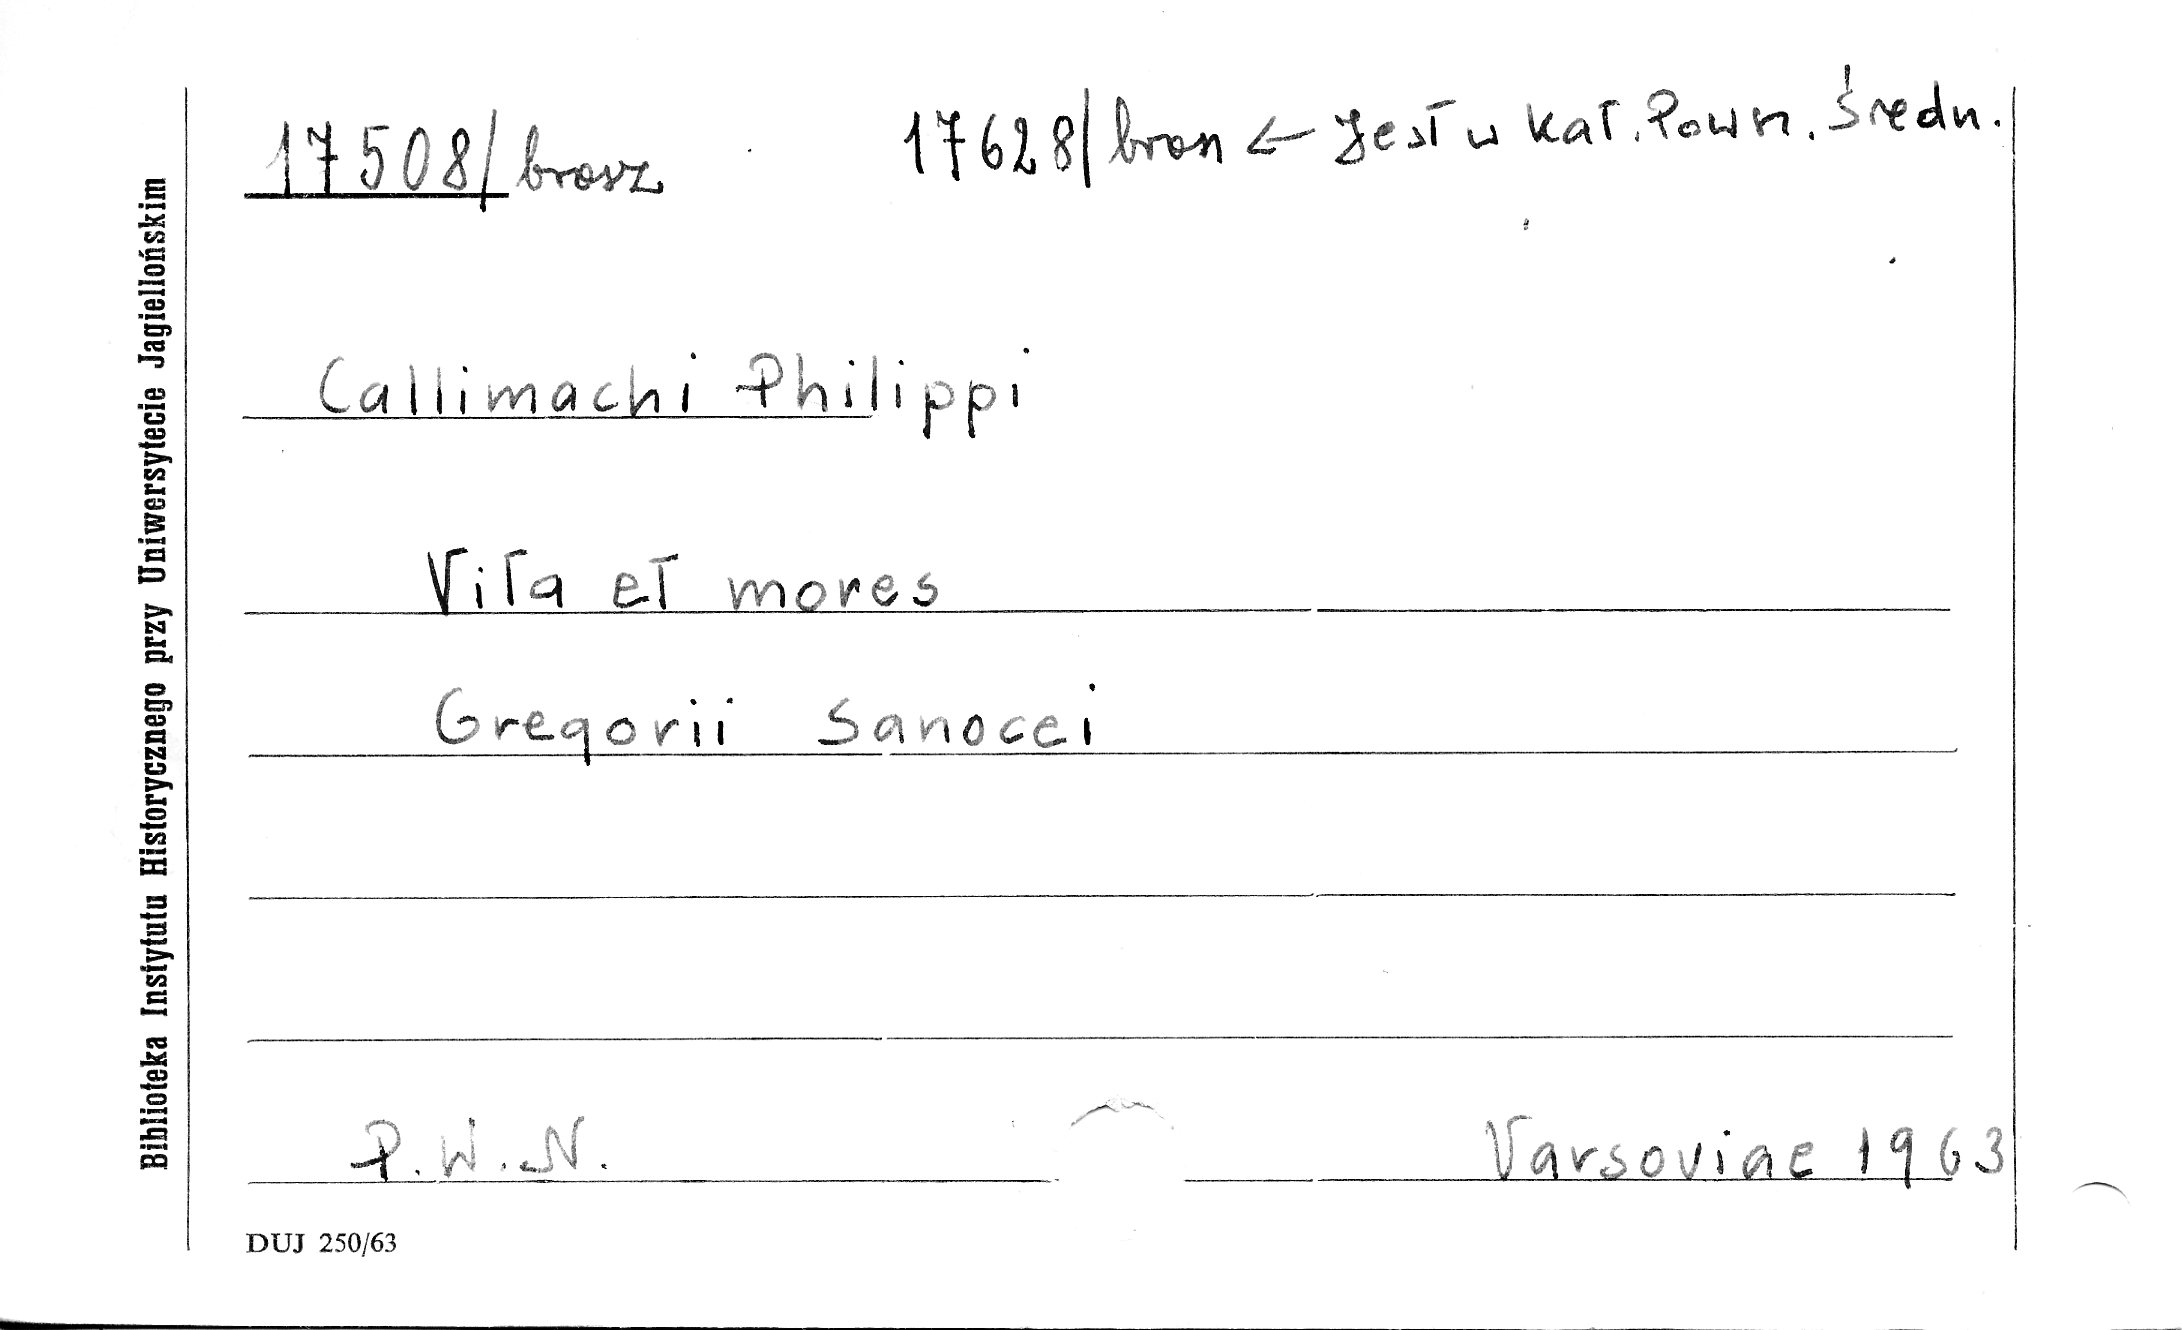 17508/brosz 17628/bros ← Jest w kat. Powsz. Średn.
Biblioteka Instytutu Historycznego przy Uniwersytecie Jagiellońskim
Callimachi Philippi
Vita et mores
Gregorii Sanocei
P.W.N. Varsoviae 1963
DUJ 250/63